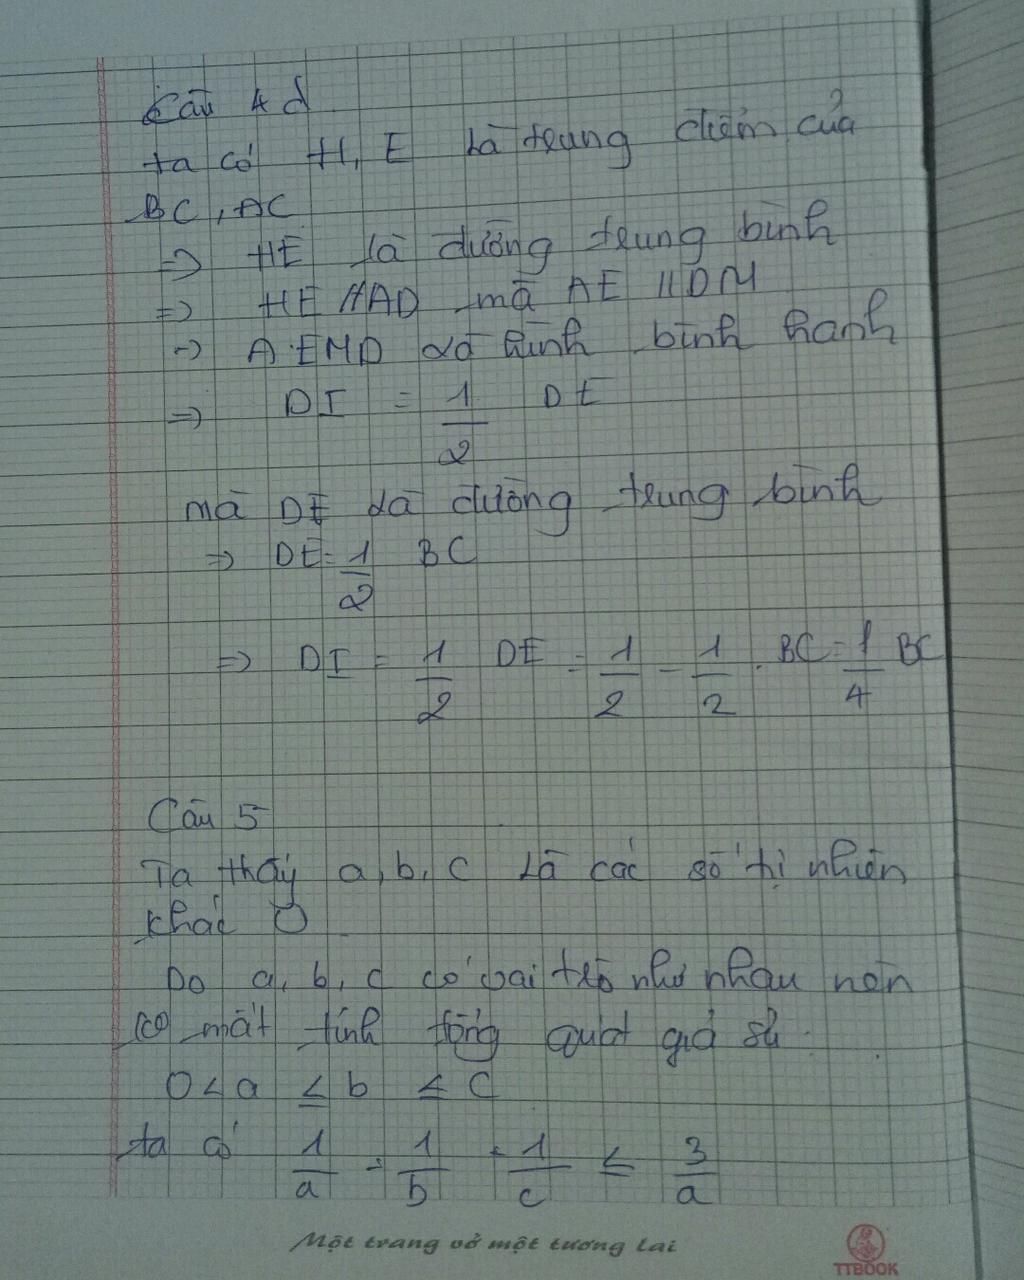 Câu 4d
ta có H, E là trung điểm của
BC, AC
=> HE là đường trung bình
=> HE // AD mà AE // DM
=> AEMD là hình bình hành
=> DI = 1/2 DE
mà DE là đường trung bình
=> DE = 1/2 BC
=> DI = 1/2 DE = 1/2 - 1/2 . BC = 1/4 BC
Câu 5
Ta thấy a, b, c là các số tự nhiên
khác 0
Do a, b, c có vai trò như nhau nên
mất tính tổng quát giả sử
0 < a ≤ b ≤ c
ta có 1/a + 1/b + 1/c ≤ 3/a
Một trang vở một tương lai
TTBOOK